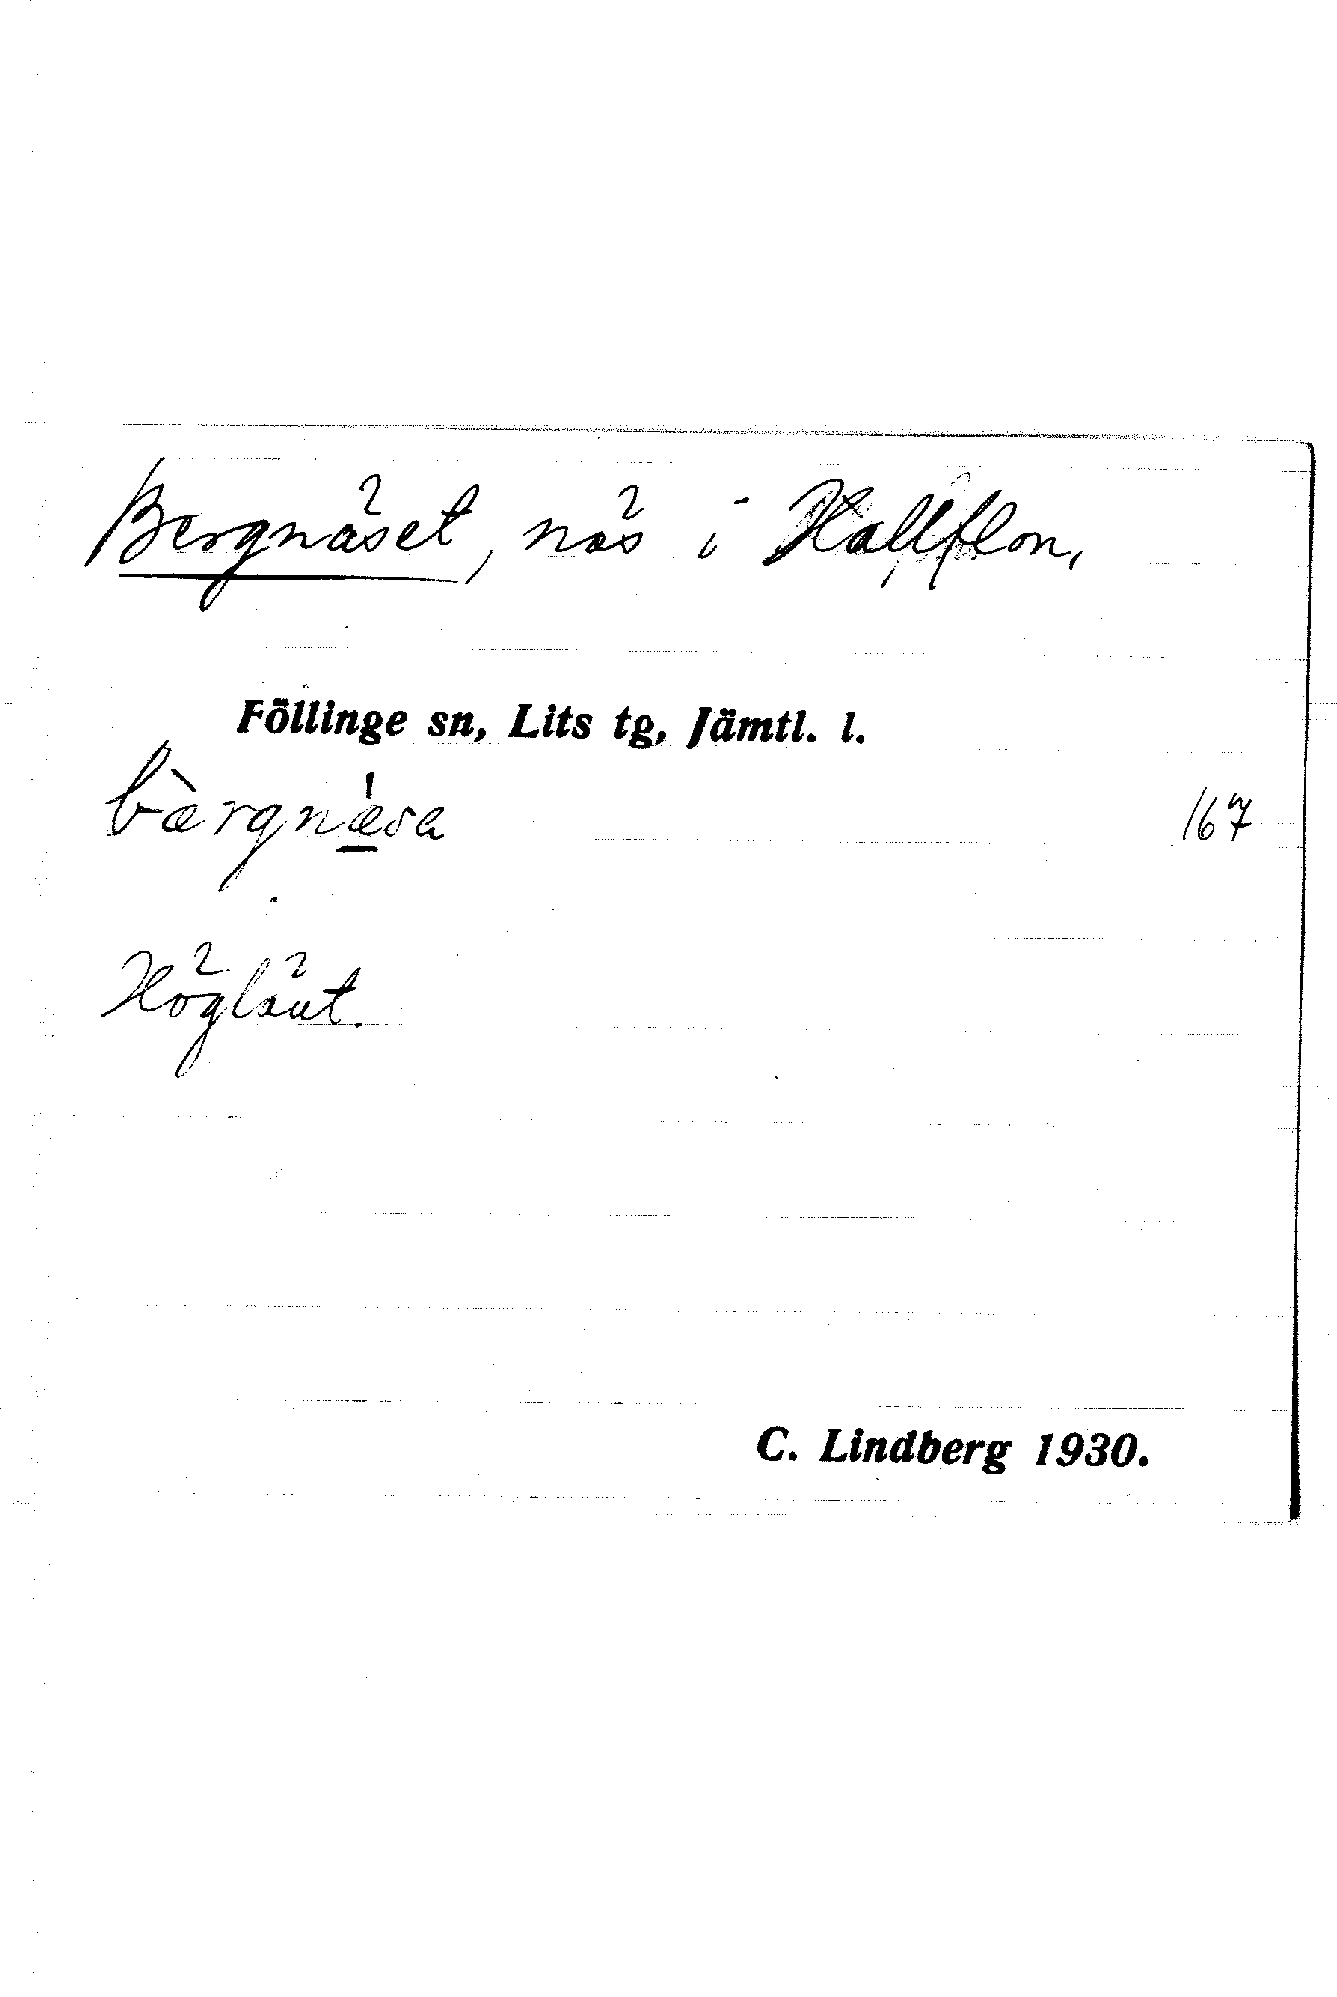 Bergnäset, näs i Hallflon,
Föllinge sn, Lits tg, Jämtl. l.
bàrgnæ̀sa 167
Högläut.
C. Lindberg 1930.